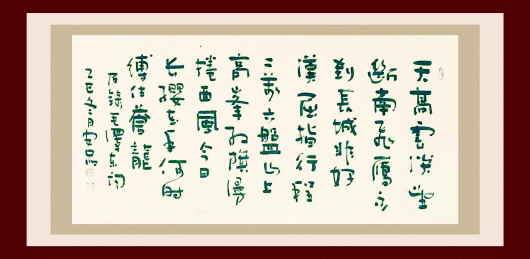 天高雲淡望
斷南飛鴈不
到長城非好
漢屈指行程
二萬六盤山上
高峯紅旗漫
捲西風今日
長纓在手何時
縛住蒼龍
右錄毛澤東詞
乙巳冬月